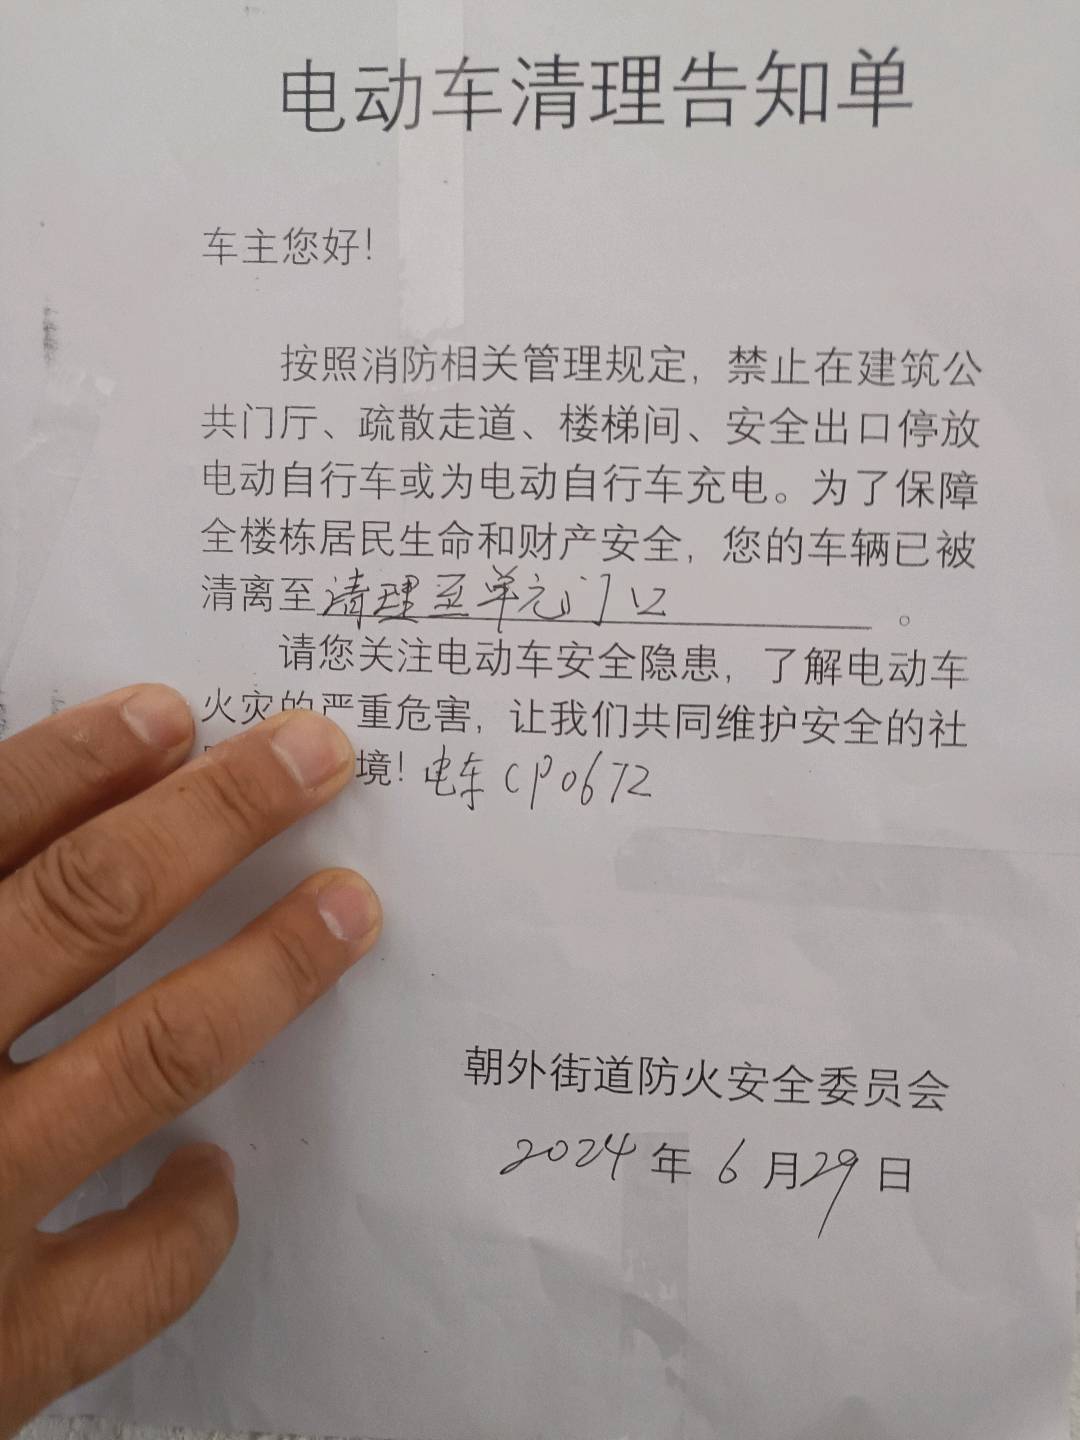 电动车清理告知单
车主您好！
按照消防相关管理规定，禁止在建筑公
共门厅、疏散走道、楼梯间、安全出口停放
电动自行车或为电动自行车充电。为了保障
全楼栋居民生命和财产安全，您的车辆已被
清离至清理至单元门口。
请您关注电动车安全隐患，了解电动车
火灾的严重危害，让我们共同维护安全的社
境！电车CP0672
朝外街道防火安全委员会
2024年6月29日